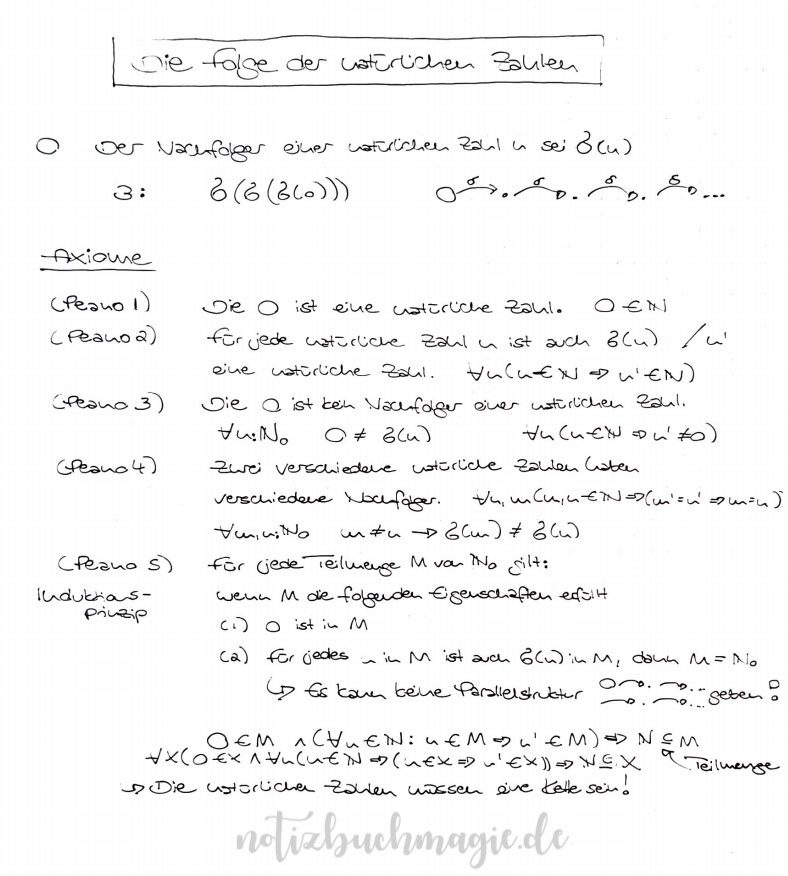 Die Folge der natürlichen Zahlen
0 Der Nachfolger einer natürlichen Zahl n sei δ(n)
3: δ(δ(δ(0))) 0 δ . δ . δ . δ ...
Axiome
(Peano 1) Die 0 ist eine natürliche Zahl. 0 ∈ ℕ
(Peano 2) Für jede natürliche Zahl n ist auch δ(n) / n'
eine natürliche Zahl. ∀n(n ∈ ℕ ⇒ n' ∈ ℕ)
(Peano 3) Die 0 ist kein Nachfolger einer natürlichen Zahl.
∀n:ℕ₀ 0 ≠ δ(n) ∀n(n ∈ ℕ ⇒ n' ≠ 0)
(Peano 4) Zwei verschiedene natürliche Zahlen haben
verschiedene Nachfolger. ∀n,m(m,n ∈ ℕ ⇒ (m' = n' ⇒ m = n)
∀m,n:ℕ₀ m ≠ n → δ(m) ≠ δ(n)
(Peano 5) Für jede Teilmenge M von ℕ₀ gilt:
Induktions- wenn M die folgenden Eigenschaften erfüllt
prinzip
(1) 0 ist in M
(2) für jedes n in M ist auch δ(n) in M, dann M = ℕ₀
↳ Es kann keine Parallelstruktur geben!
0 ∈ M ∧ (∀n ∈ ℕ: n ∈ M ⇒ n' ∈ M) ⇒ ℕ ⊆ M
∀X(0 ∈ X ∧ ∀n(n ∈ ℕ ⇒ (n ∈ X ⇒ n' ∈ X)) ⇒ ℕ ⊆ X Teilmenge
→ Die natürlichen Zahlen müssen eine Kette sein!
notizbuchmagie.de